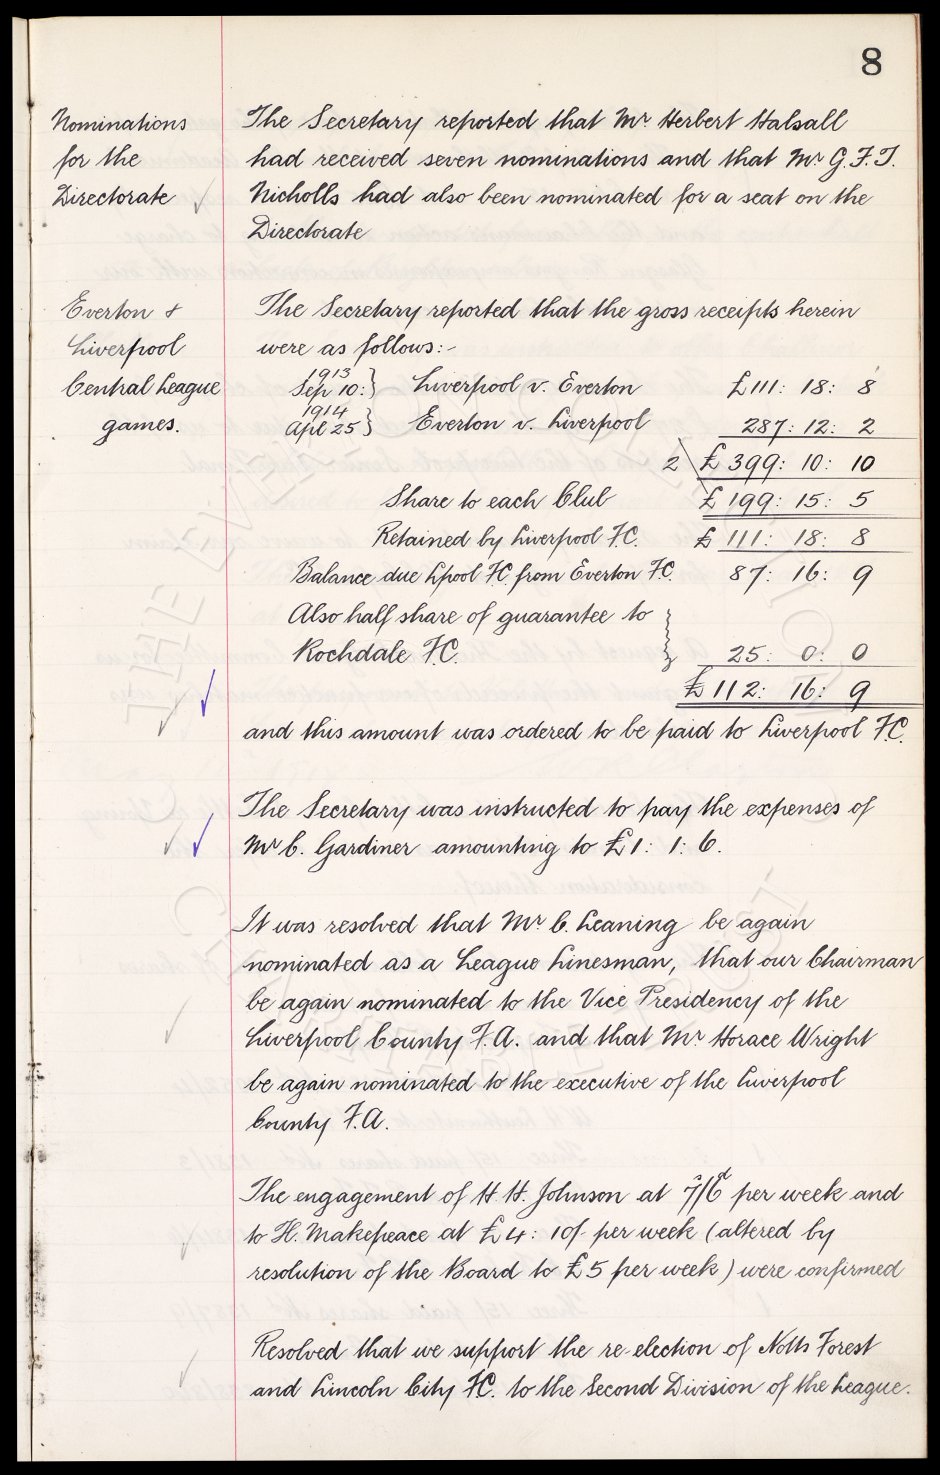 8
Nominations
for the
Directorate
The Secretary reported that Mr Herbert Halsall
had received seven nominations and that Mr G.F.T.
Nicholls had also been nominated for a seat on the
Directorate
Everton &
Liverpool
Central League
games.
The Secretary reported that the gross receipts herein
were as follows:-
1913
Sep 10: } Liverpool v. Everton £111: 18: 8
1914
Apl 25 } Everton v. Liverpool 287: 12: 2
2 £399: 10: 10
Share to each Club £199: 15: 5
Retained by Liverpool F.C. £111: 18: 8
Balance due Lpool F.C. from Everton F.C. 87: 16: 9
Also half share of guarantee to
Rochdale F.C. } 25: 0: 0
£112: 16: 9
and this amount was ordered to be paid to Liverpool F.C.
The Secretary was instructed to pay the expenses of
Mr C. Gardiner amounting to £1: 1: 6.
It was resolved that Mr C. Leaning be again
nominated as a League Linesman, that our Chairman
be again nominated to the Vice Presidency of the
Liverpool County F.A. and that Mr Horace Wright
be again nominated to the executive of the Liverpool
County F.A.
The engagement of H.H. Johnson at 7/6d per week and
to H. Makepeace at £4: 10/- per week (altered by
resolution of the Board to £5 per week) were confirmed
Resolved that we support the re-election of Notts Forest
and Lincoln City F.C. to the Second Division of the League.